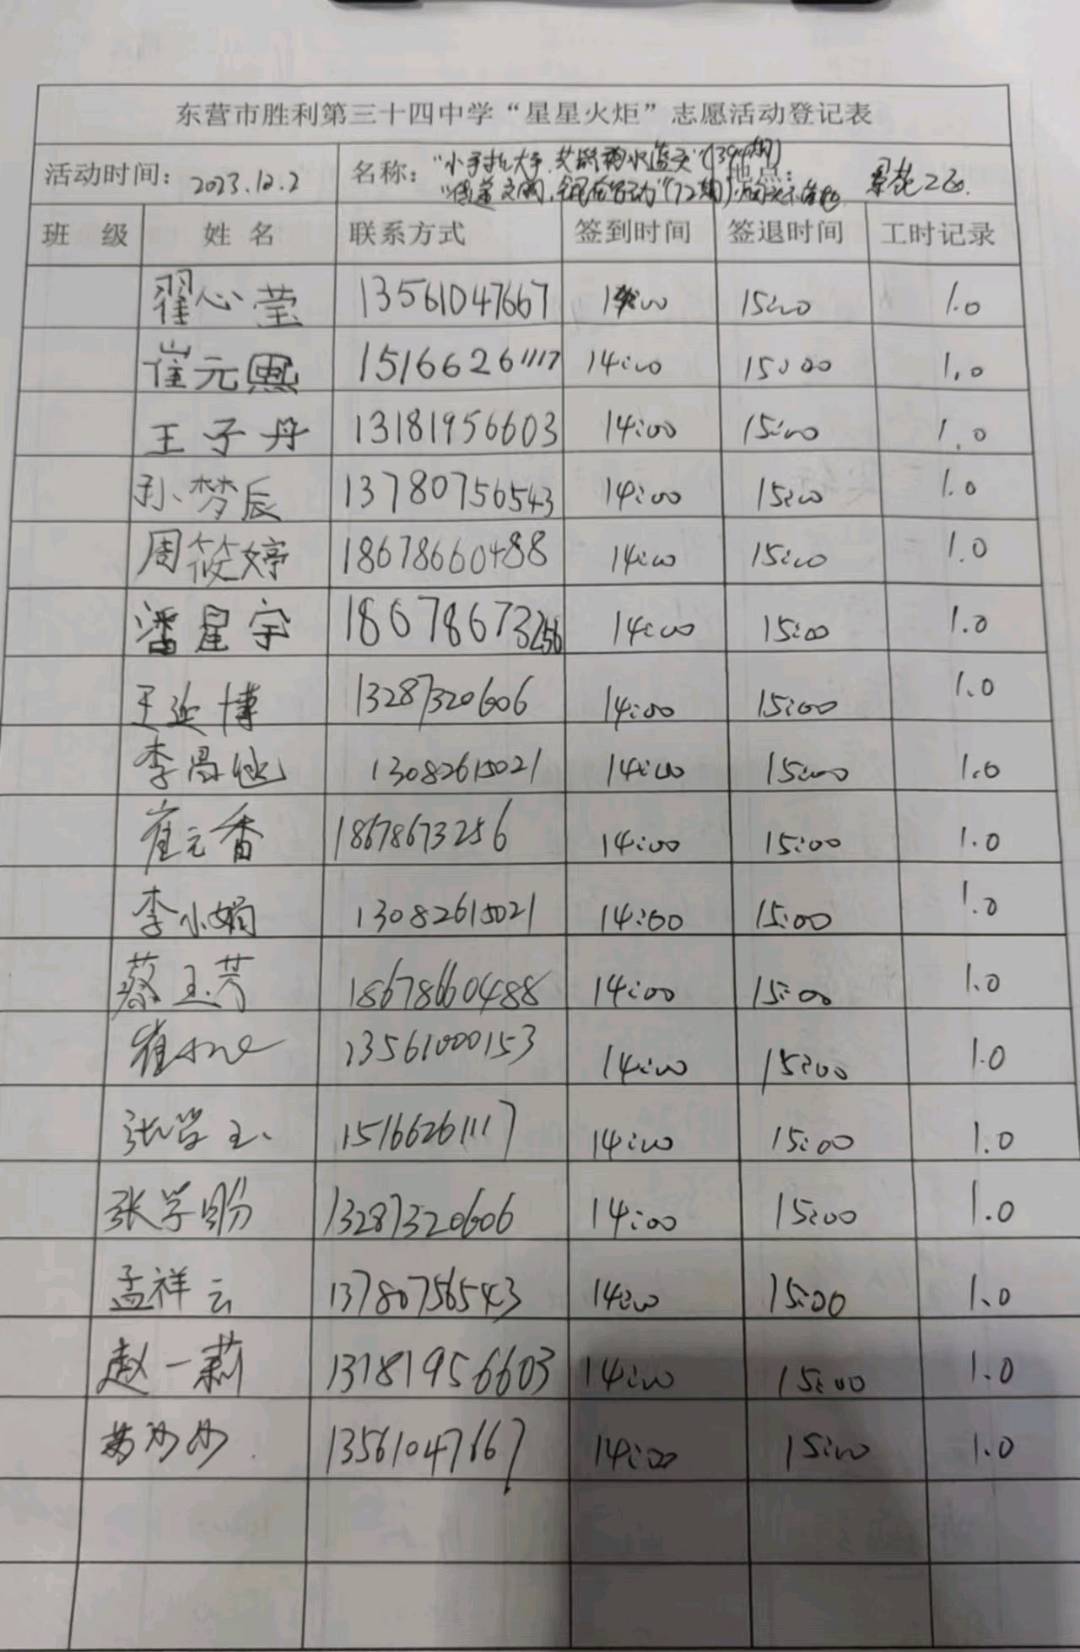 东营市胜利第三十四中学“星星火炬”志愿活动登记表
活动时间： 2023.12.2 名称： “小手拉大手, 共盼碧水蓝天”(394期) 地点：
班 级 姓 名 联系方式 签到时间 签退时间 工时记录
翟心莹 13561047667 14:00 15:00 1.0
崔元熙 15166261117 14:00 15:00 1.0
王子丹 13181956603 14:00 15:00 1.0
孙梦辰 13780756543 14:00 15:00 1.0
周筱婷 18678660488 14:00 15:00 1.0
潘星宇 18678673256 14:00 15:00 1.0
王延博 13287320606 14:00 15:00 1.0
李 13082615021 14:00 15:00 1.0
崔元香 18678673256 14:00 15:00 1.0
李小娟 13082615021 14:00 15:00 1.0
蔡玉芳 18678660488 14:00 15:00 1.0
崔 13561000153 14:00 15:00 1.0
张学玉 15166261117 14:00 15:00 1.0
张学盼 13287320606 14:00 15:00 1.0
孟祥云 13780756543 14:00 15:00 1.0
赵一莉 13181956603 14:00 15:00 1.0
13561047667 14:00 15:00 1.0